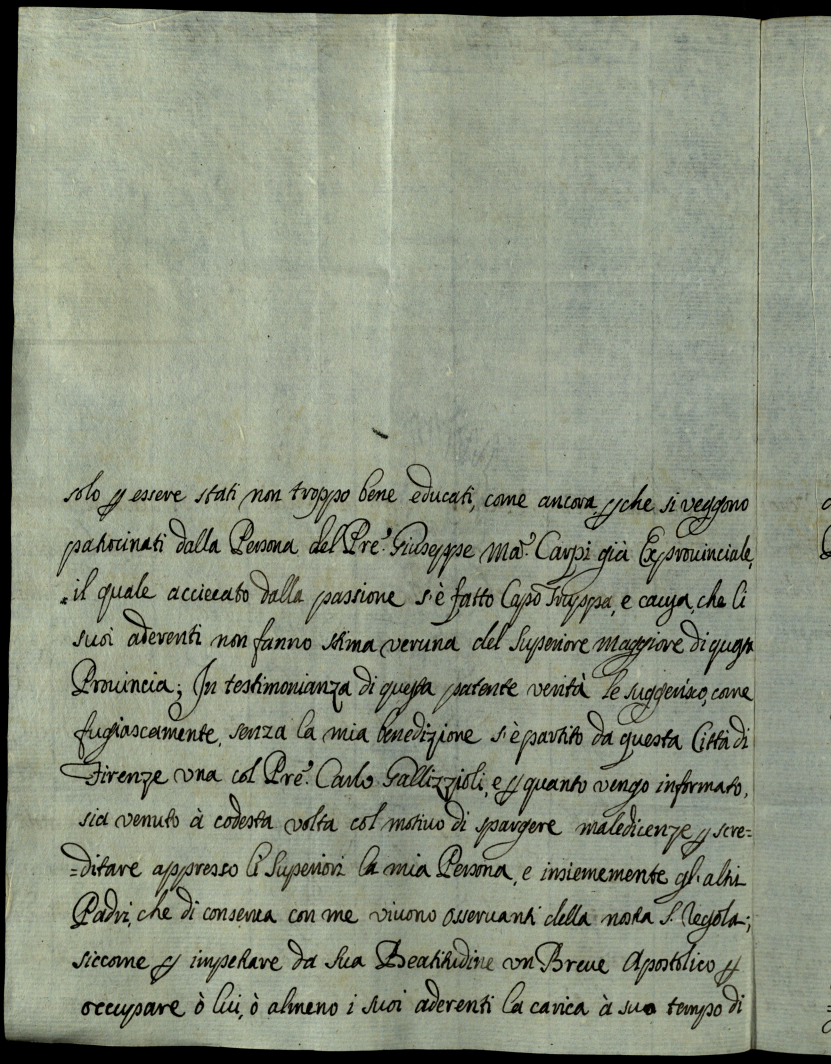 solo ꝑ essere stati non troppo bene educati, come ancora ꝑche si veggono
patrocinati dalla Persona del Pre: Giuseppe Ma: Carpi già Exprouinciale,
il quale acciecato dalla passione s'è fatto Capo truppa, e causa, che li
suoi aderenti non fanno stima veruna del Superiore Maggiore di questa
Prouincia; In testimonianza di questa patente verità le suggerisco, come
fugiascamente, senza la mia benedizione s'è partito da questa Città di
Firenze vna col Pre: Carlo Gallizzioli, e ꝑ quanto vengo informato,
sia venuto à codesta volta col motiuo di spargere maledicenze ꝑ scre=
=ditare appresso li Superiori la mia Persona, e insiememente gl'altri
Padri, che di conserua con me viuono osseruanti della nostra S. Regola;
siccome ꝑ impetrare da Sua Beatitudine vn Breue Apostolico ꝑ
occupare ò lui, ò almeno i suoi aderenti la carica à suo tempo di